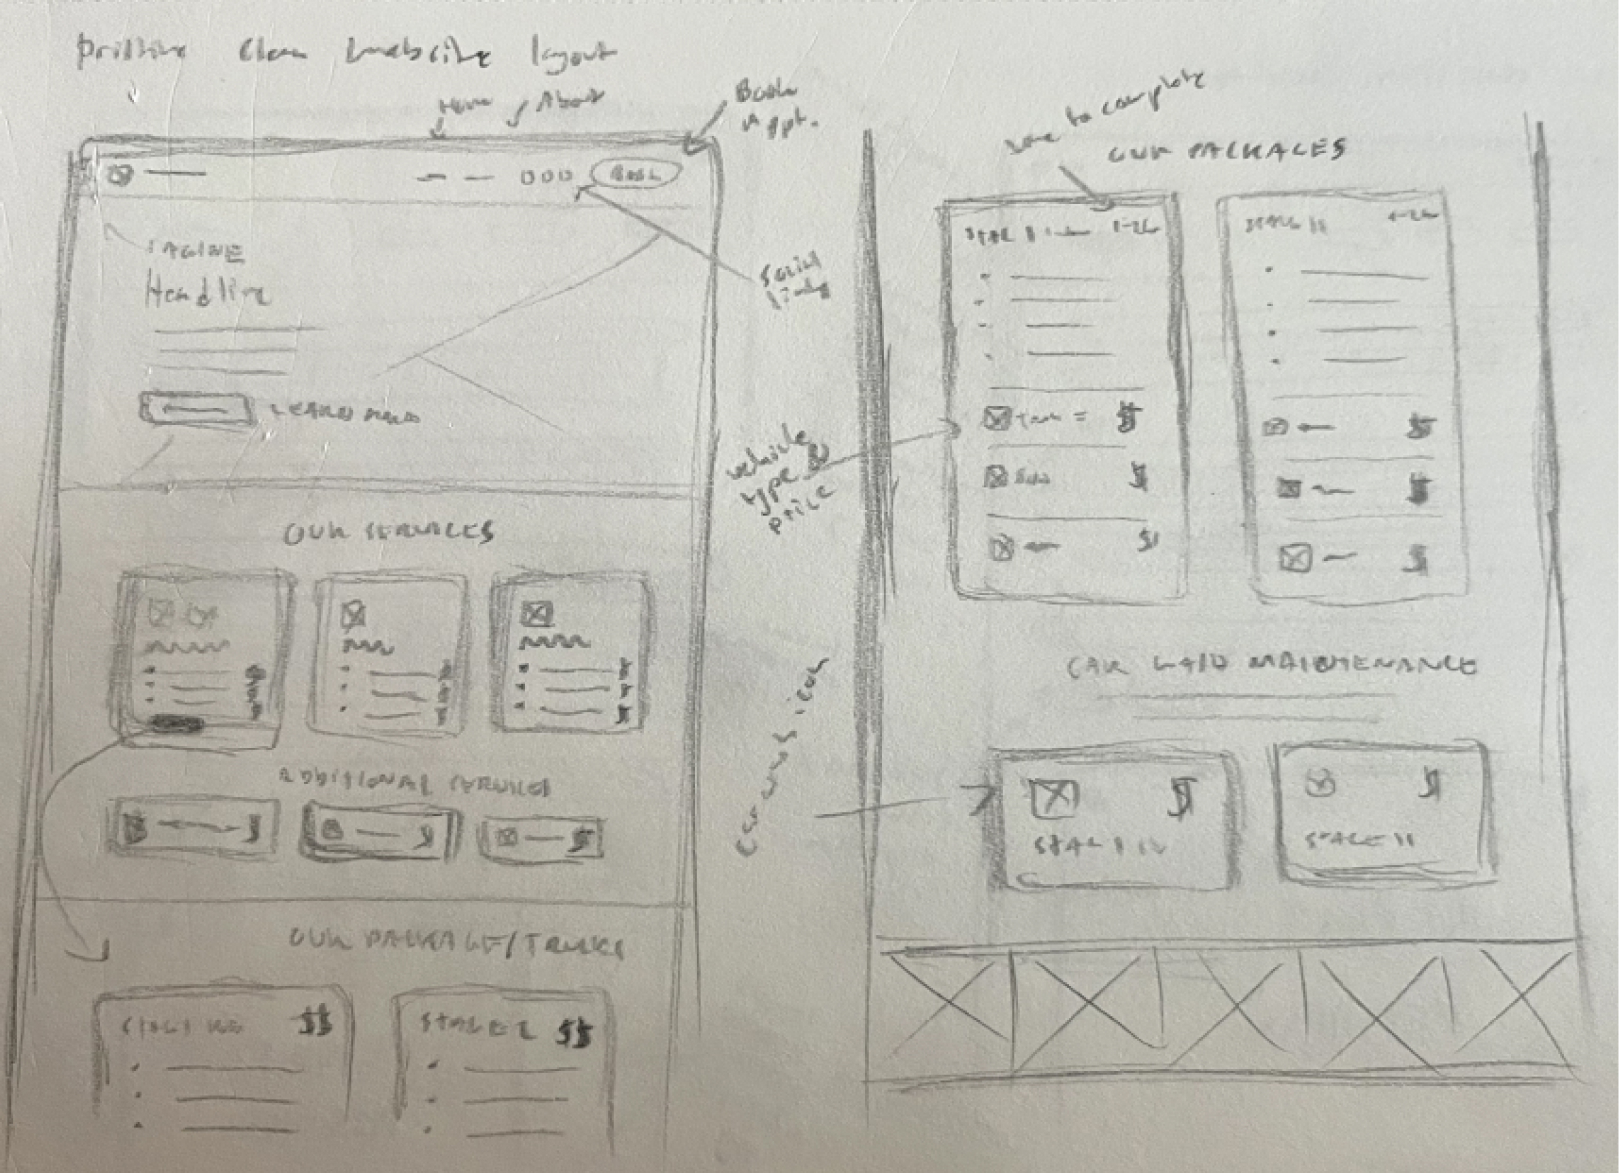 Pristine Clean Website layout
Home
About
Book
Appt.
BOOK
TAGLINE
Headline
LEARN MORE
Social
links
OUR SERVICES
ADDITIONAL SERVICES
OUR PACKAGE/TRUCKS
$$
STAGE 2 $$
time to complete
OUR PACKAGES
STAGE II
vehicle
type &
price
= $
$
$
$
$
$
CAR WASH MAINTENANCE
Car wash icon
$
$
STAGE II